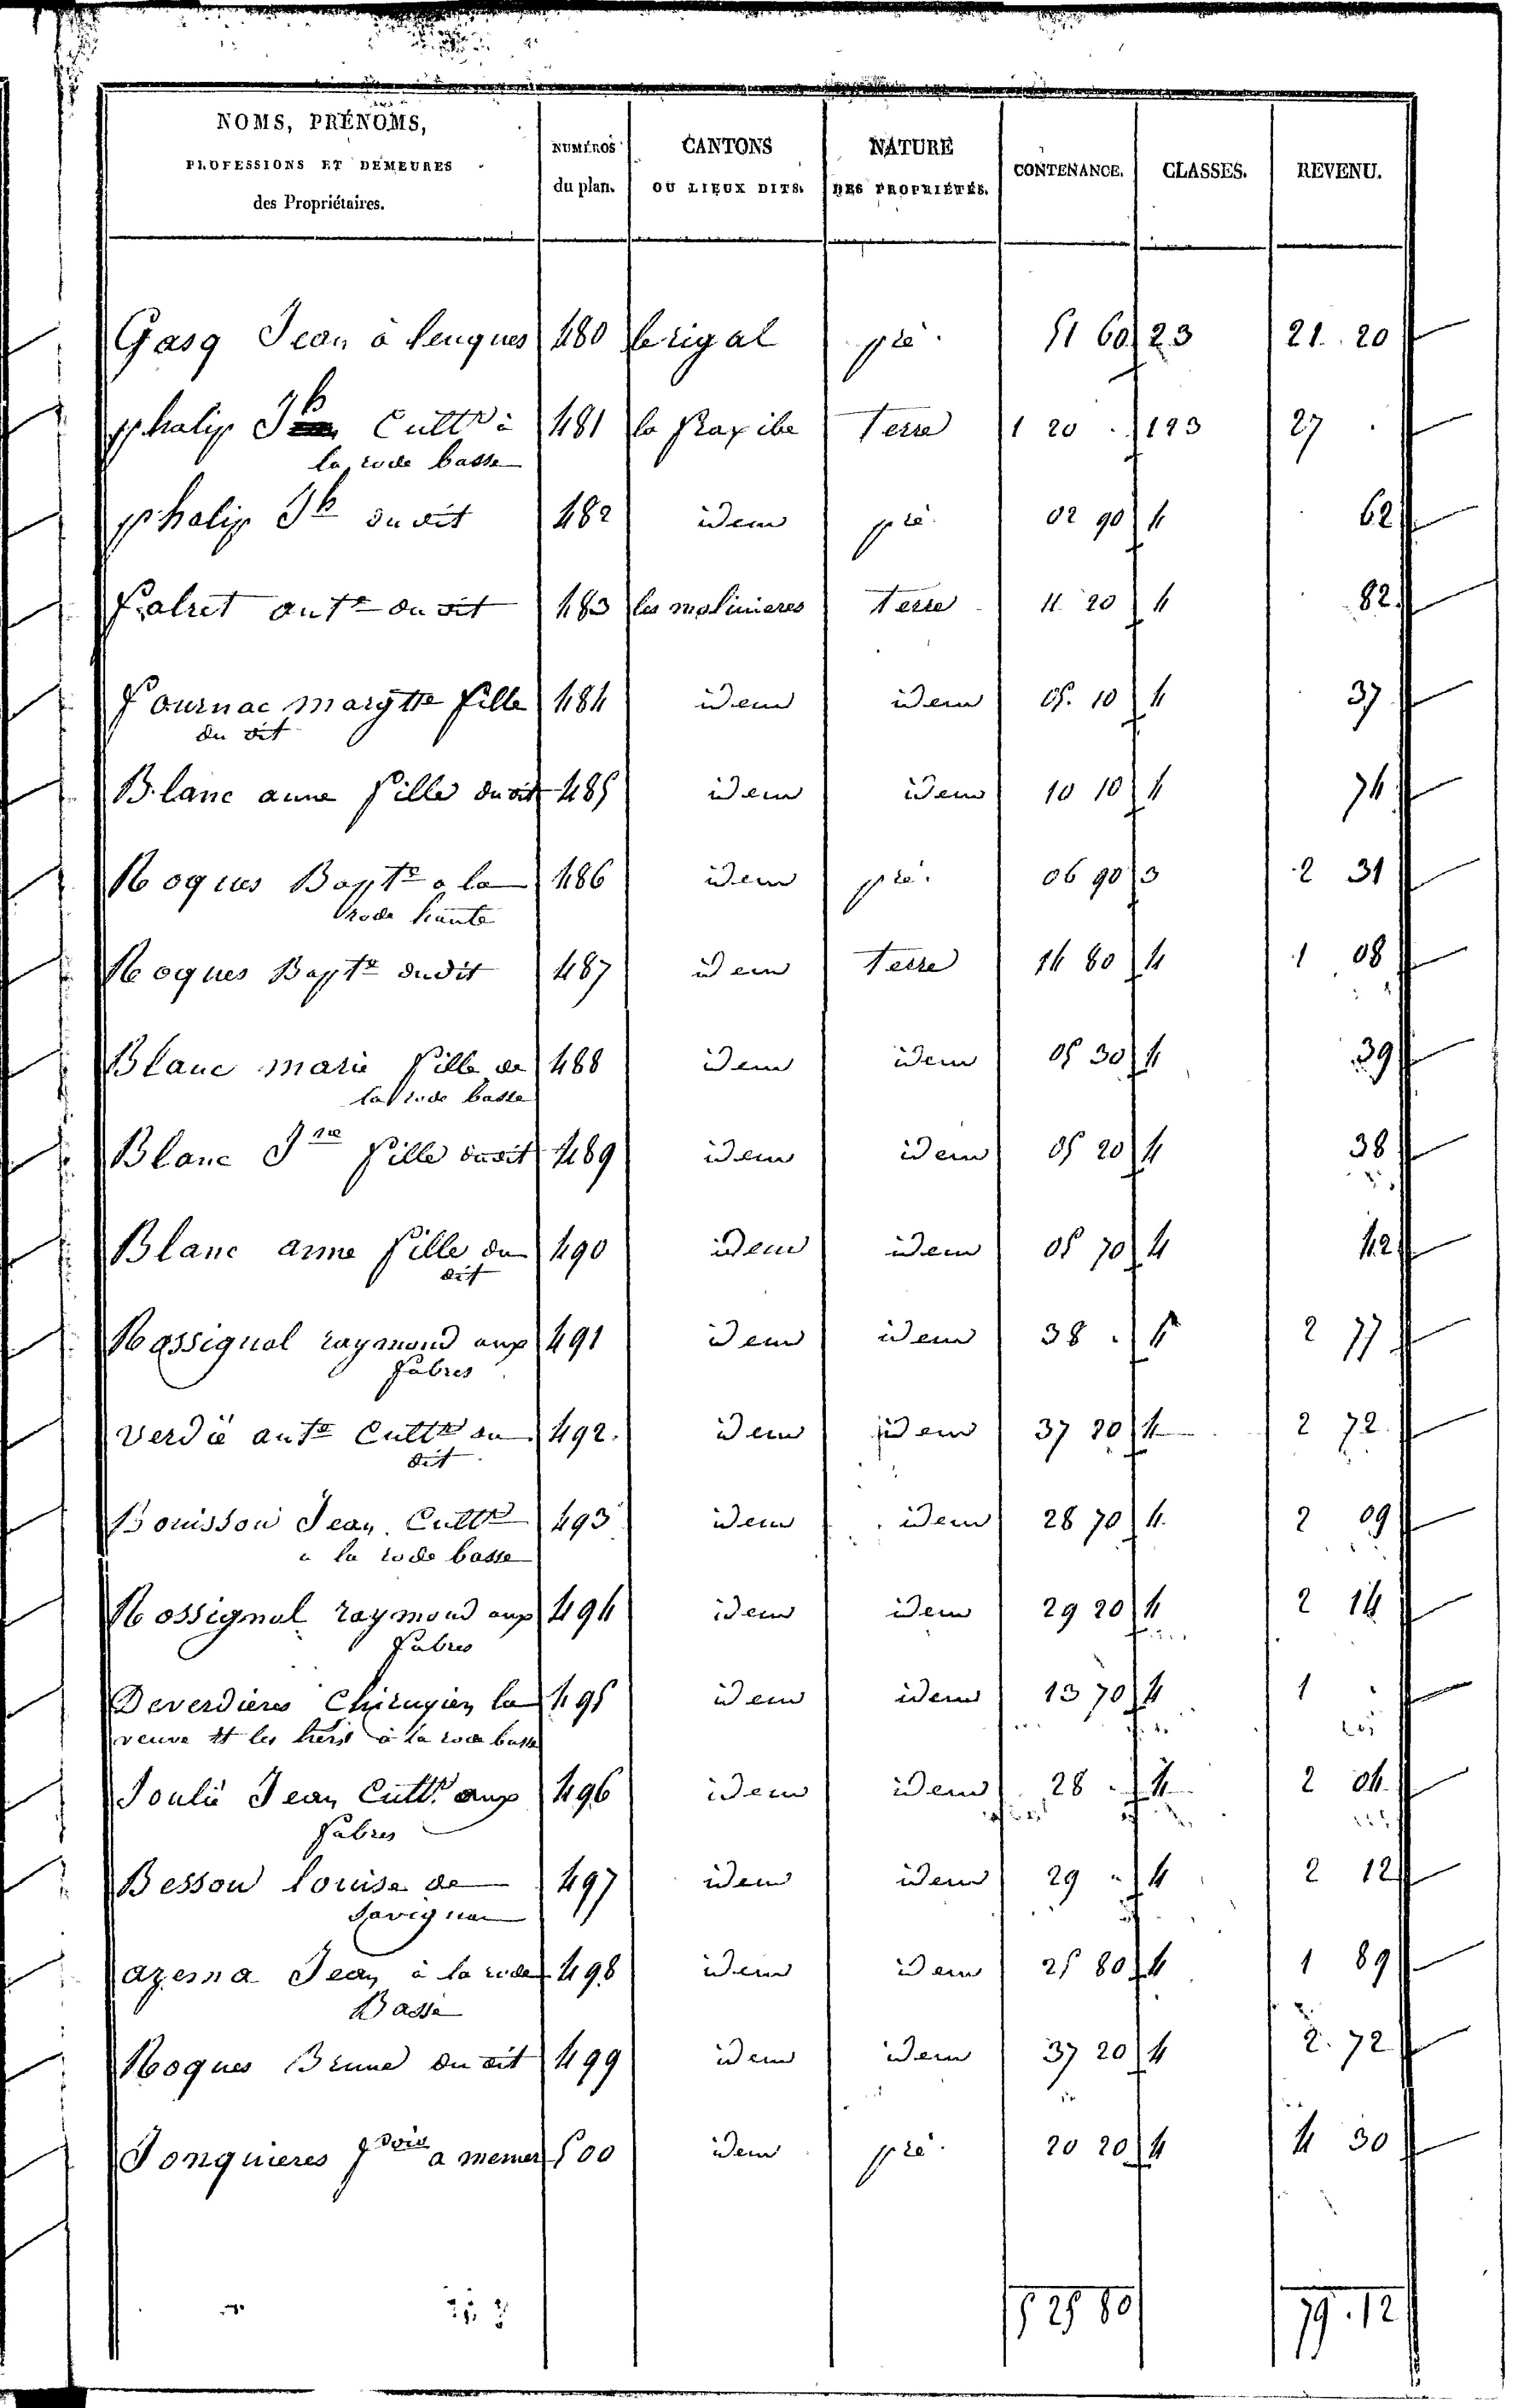 NOMS, PRÉNOMS,
PROFESSIONS ET DEMEURES
des Propriétaires.
NUMÉROS
du plan.
CANTONS
OU LIEUX DITS.
NATURE
DES PROPRIÉTÉS.
CONTENANCE.
CLASSES.
REVENU.
Gasq Jean à lengues 480 le rigal pré 51 60 23 21 20
phalip Jh Cultr à 481 la fraxibe Terre 1 20 . 123 27 .
la rode basse
phalip Jh du dit 482 idem pré 02 90 4 62
falret ante du dit 483 les molinieres Terre 11 20 4 82
Fournac margtte fille 484 idem idem 05 10 4 37
du dit
Blanc anne fille du dit 485 idem idem 10 10 4 74
Roques Bapte a la 486 idem pré 06 90 3 2 31
rode haute
Roques Bapte dudit 487 idem Terre 14 80 4 1 08
Blanc marie fille de 488 idem idem 05 30 4 39
la rode basse
Blanc Jne fille dudit 489 idem idem 05 20 4 38
Blanc anne fille du 490 idem idem 05 70 4 42
dit
Rossignol raymond aux 491 idem idem 38 . 4 2 77
fabres
Verdié ante Cultr du 492 idem idem 37 20 4 2 72
dit
Bouisson Jean Cultr 493 idem idem 28 70 4 2 09
a la rode basse
Rossignol raymond aux 494 idem idem 29 20 4 2 14
fabres
Deverdieres Chirugien la 495 idem idem 13 70 4 1 .
veuve et les hers à la rode basse
Soulié Jean Cultr aux 496 idem idem 28 . 4 2 04
fabres
Besson louise de 497 idem idem 29 . 4 2 12
Savignac
azema Jean à la rode 498 idem idem 25 80 4 1 89
Basse
Roques Brune du dit 499 idem idem 37 20 4 2 72
Jonquieres fcois a memer 500 idem pré 20 20 4 4 30
5 25 80 79.12